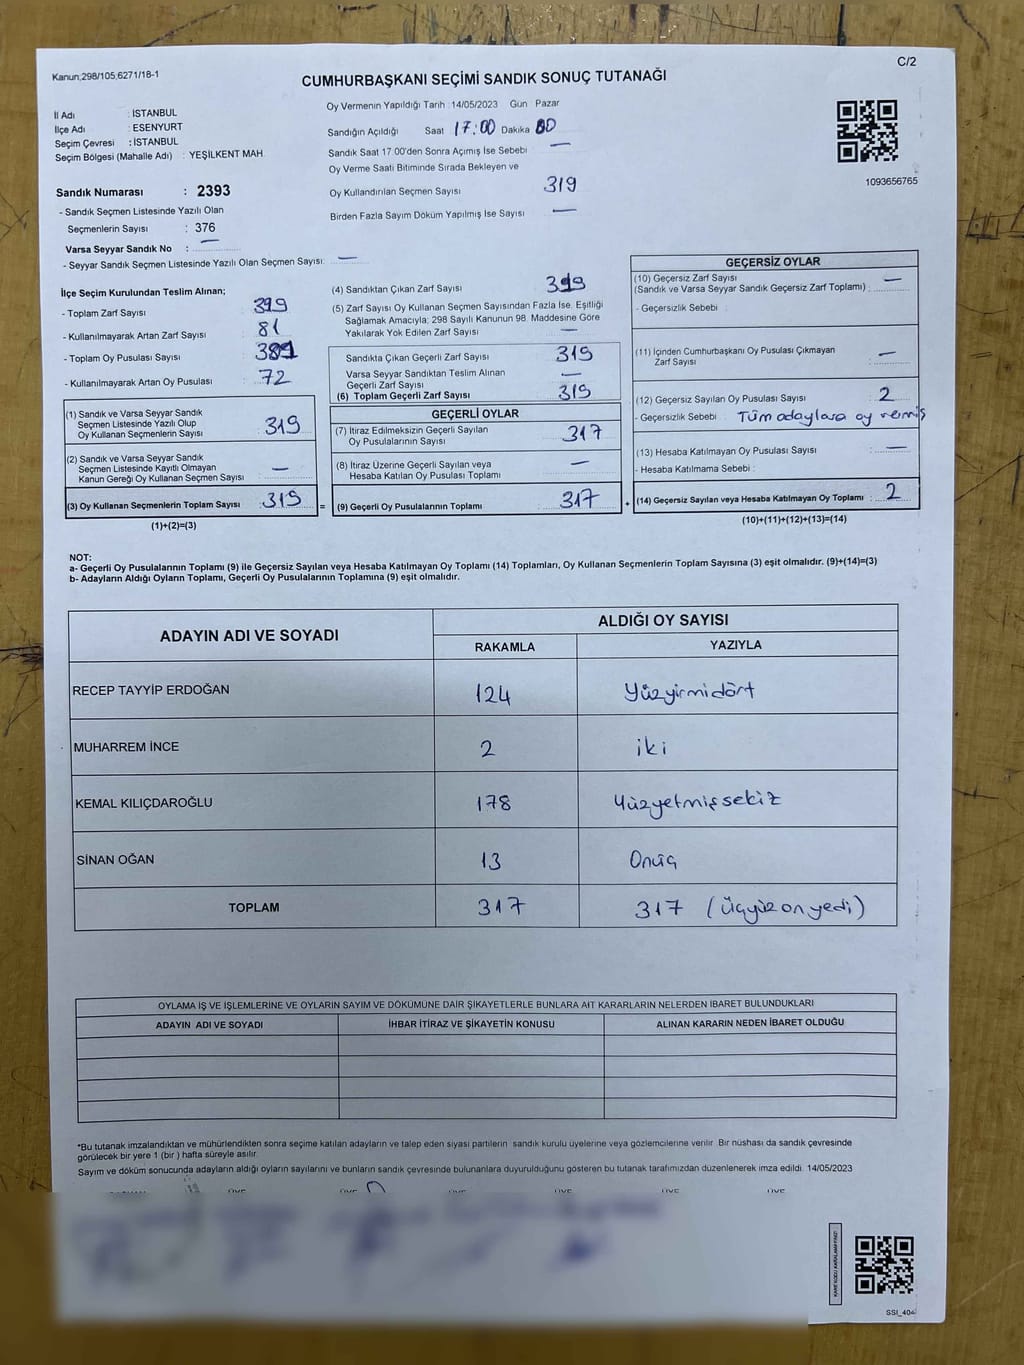 Kanun;298/105;6271/18-1
C/2
CUMHURBAŞKANI SEÇİMİ SANDIK SONUÇ TUTANAĞI
İl Adı : İSTANBUL
İlçe Adı : ESENYURT
Seçim Çevresi : İSTANBUL
Seçim Bölgesi (Mahalle Adı) : YEŞİLKENT MAH
Sandık Numarası : 2393
- Sandık Seçmen Listesinde Yazılı Olan
Seçmenlerin Sayısı : 376
Varsa Seyyar Sandık No : —
- Seyyar Sandık Seçmen Listesinde Yazılı Olan Seçmen Sayısı: —
Oy Vermenin Yapıldığı Tarih : 14/05/2023 Gün Pazar
Sandığın Açıldığı Saat 17:00 Dakika 00
Sandık Saat 17.00'den Sonra Açımış İse Sebebi —
Oy Verme Saati Bitiminde Sırada Bekleyen ve
Oy Kullandırılan Seçmen Sayısı 319
Birden Fazla Sayım Döküm Yapılmış İse Sayısı —
1093656765
İlçe Seçim Kurulundan Teslim Alınan;
- Toplam Zarf Sayısı
- Kullanılmayarak Artan Zarf Sayısı 81
- Toplam Oy Pusulası Sayısı
- Kullanılmayarak Artan Oy Pusulası 72
(1) Sandık ve Varsa Seyyar Sandık
Seçmen Listesinde Yazılı Olup
Oy Kullanan Seçmenlerin Sayısı 319
(2) Sandık ve Varsa Seyyar Sandık
Seçmen Listesinde Kayıtlı Olmayan
Kanun Gereği Oy Kullanan Seçmen Sayısı —
(3) Oy Kullanan Seçmenlerin Toplam Sayısı 319
(1)+(2)=(3)
=
(4) Sandıktan Çıkan Zarf Sayısı 319
(5) Zarf Sayısı Oy Kullanan Seçmen Sayısından Fazla İse, Eşitliği
Sağlamak Amacıyla; 298 Sayılı Kanunun 98. Maddesine Göre
Yakılarak Yok Edilen Zarf Sayısı —
Sandıkta Çıkan Geçerli Zarf Sayısı 319
Varsa Seyyar Sandıktan Teslim Alınan
Geçerli Zarf Sayısı —
(6) Toplam Geçerli Zarf Sayısı 319
GEÇERLİ OYLAR
(7) İtiraz Edilmeksizin Geçerli Sayılan
Oy Pusulalarının Sayısı 317
(8) İtiraz Üzerine Geçerli Sayılan veya
Hesaba Katılan Oy Pusulası Toplamı —
(9) Geçerli Oy Pusulalarının Toplamı 317
+
GEÇERSİZ OYLAR
(10) Geçersiz Zarf Sayısı
(Sandık ve Varsa Seyyar Sandık Geçersiz Zarf Toplamı) : —
- Geçersizlik Sebebi :
(11) İçinden Cumhurbaşkanı Oy Pusulası Çıkmayan
Zarf Sayısı : —
(12) Geçersiz Sayılan Oy Pusulası Sayısı : 2
- Geçersizlik Sebebi : Tüm adaylara oy vermiş
(13) Hesaba Katılmayan Oy Pusulası Sayısı : —
- Hesaba Katılmama Sebebi :
(14) Geçersiz Sayılan veya Hesaba Katılmayan Oy Toplamı : 2
(10)+(11)+(12)+(13)=(14)
NOT:
a- Geçerli Oy Pusulalarının Toplamı (9) ile Geçersiz Sayılan veya Hesaba Katılmayan Oy Toplamı (14) Toplamları, Oy Kullanan Seçmenlerin Toplam Sayısına (3) eşit olmalıdır. (9)+(14)=(3)
b- Adayların Aldığı Oyların Toplamı, Geçerli Oy Pusulalarının Toplamına (9) eşit olmalıdır.
ADAYIN ADI VE SOYADI
ALDIĞI OY SAYISI
RAKAMLA YAZIYLA
RECEP TAYYİP ERDOĞAN 124 Yüzyirmidört
MUHARREM İNCE 2 iki
KEMAL KILIÇDAROĞLU 178 Yüzyetmişsekiz
SİNAN OĞAN 13 Onüç
TOPLAM 317 317 (Üçyüzonyedi)
OYLAMA İŞ VE İŞLEMLERİNE VE OYLARIN SAYIM VE DÖKÜMÜNE DAİR ŞİKAYETLERLE BUNLARA AİT KARARLARIN NELERDEN İBARET BULUNDUKLARI
ADAYIN ADI VE SOYADI İHBAR İTİRAZ VE ŞİKAYETİN KONUSU ALINAN KARARIN NEDEN İBARET OLDUĞU
*Bu tutanak imzalandıktan ve mühürlendikten sonra seçime katılan adayların ve talep eden siyasi partilerin sandık kurulu üyelerine veya gözlemcilerine verilir. Bir nüshası da sandık çevresinde
görülecek bir yere 1 (bir ) hafta süreyle asılır.
Sayım ve döküm sonucunda adayların aldığı oyların sayılarını ve bunların sandık çevresinde bulunanlara duyurulduğunu gösteren bu tutanak tarafımızdan düzenlenerek imza edildi. 14/05/2023
ÜYE ÜYE ÜYE ÜYE ÜYE ÜYE
KARE KODU KARALAMAYINIZ!
SSI_404